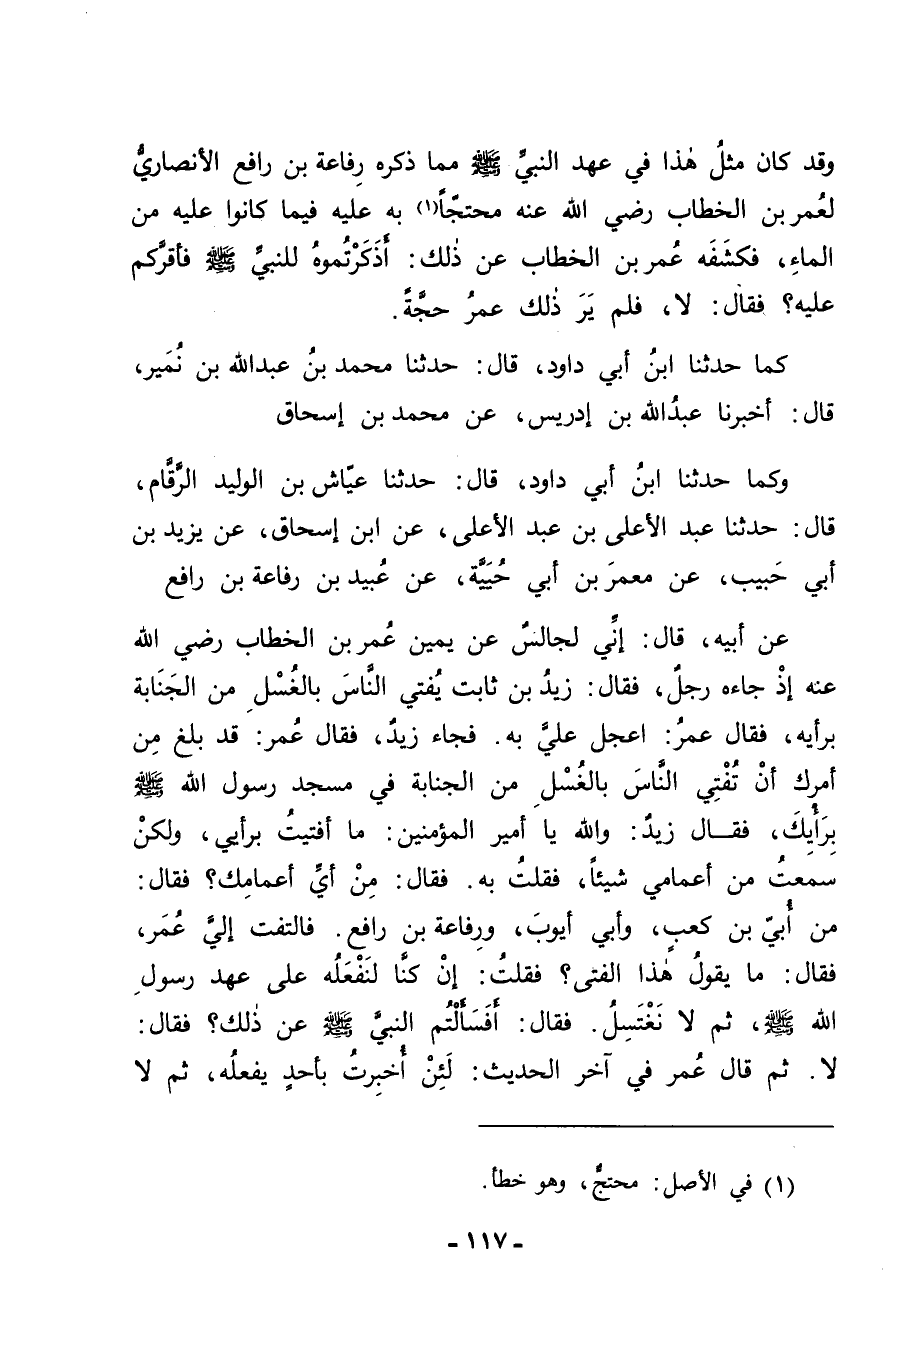 وقد كان مثلُ هٰذا في عهد النبيِّ ﷺ مما ذكره رِفاعة بن رافع الأنصاريُّ
لعُمر بن الخطاب رضي الله عنه محتجّاً(١) به عليه فيما كانوا عليه من
الماءِ، فكشَفَه عُمر بن الخطاب عن ذٰلك: أَذَكَرْتُموهُ للنبيِّ ﷺ فأقرَّكم
عليه؟ فقال: لا، فلم يَرَ ذٰلك عمرُ حجَّةً.
كما حدثنا ابنُ أبي داود، قال: حدثنا محمد بنُ عبدالله بن نُمَير،
قال: أخبرنا عبدُالله بن إدريس، عن محمد بن إسحاق
وكما حدثنا ابنُ أبي داود، قال: حدثنا عيّاش بن الوليد الرَّقَّام،
قال: حدثنا عبد الأعلى بن عبد الأعلى، عن ابن إسحاق، عن يزيد بن
أبي حَبيب، عن معمرَ بن أبي حُيَيَّة، عن عُبيد بن رفاعة بن رافع
عن أبيه، قال: إنِّي لجالسٌ عن يمين عُمر بن الخطاب رضي الله
عنه إذْ جاءه رجلٌ، فقال: زيدُ بن ثابت يُفتي النَّاسَ بالغُسْلِ من الجَنَابة
برأيه، فقال عمرُ: اعجل عليَّ به. فجاء زيدٌ، فقال عُمر: قد بلغ مِن
أمرِك أنْ تُفْتِي النَّاسَ بالغُسْلِ من الجنابة في مسجد رسول الله ﷺ
بِرَأْيِكَ، فقال زيدٌ: والله يا أمير المؤمنين: ما أفتيتُ برأيي، ولكنْ
سمعتُ من أعمامي شيئاً، فقلتُ به. فقال: مِنْ أيِّ أعمامِك؟ فقال:
من أُبيّ بن كعبٍ، وأبي أيوبَ، ورِفاعة بن رافع. فالتفت إليَّ عُمَر،
فقال: ما يقولُ هٰذا الفتى؟ فقلتُ: إنْ كنَّا لنَفْعَلُه على عهد رسولِ
الله ﷺ، ثم لا نَغْتَسِلُ. فقال: أَفَسَأَلْتُم النبيَّ ﷺ عن ذٰلك؟ فقال:
لا. ثم قال عُمر في آخر الحديث: لَئِنْ أُخبِرتُ بأحدٍ يفعلُه، ثم لا
(١) في الأصل: محتجٌّ، وهو خطأ.
- ١١٧ -